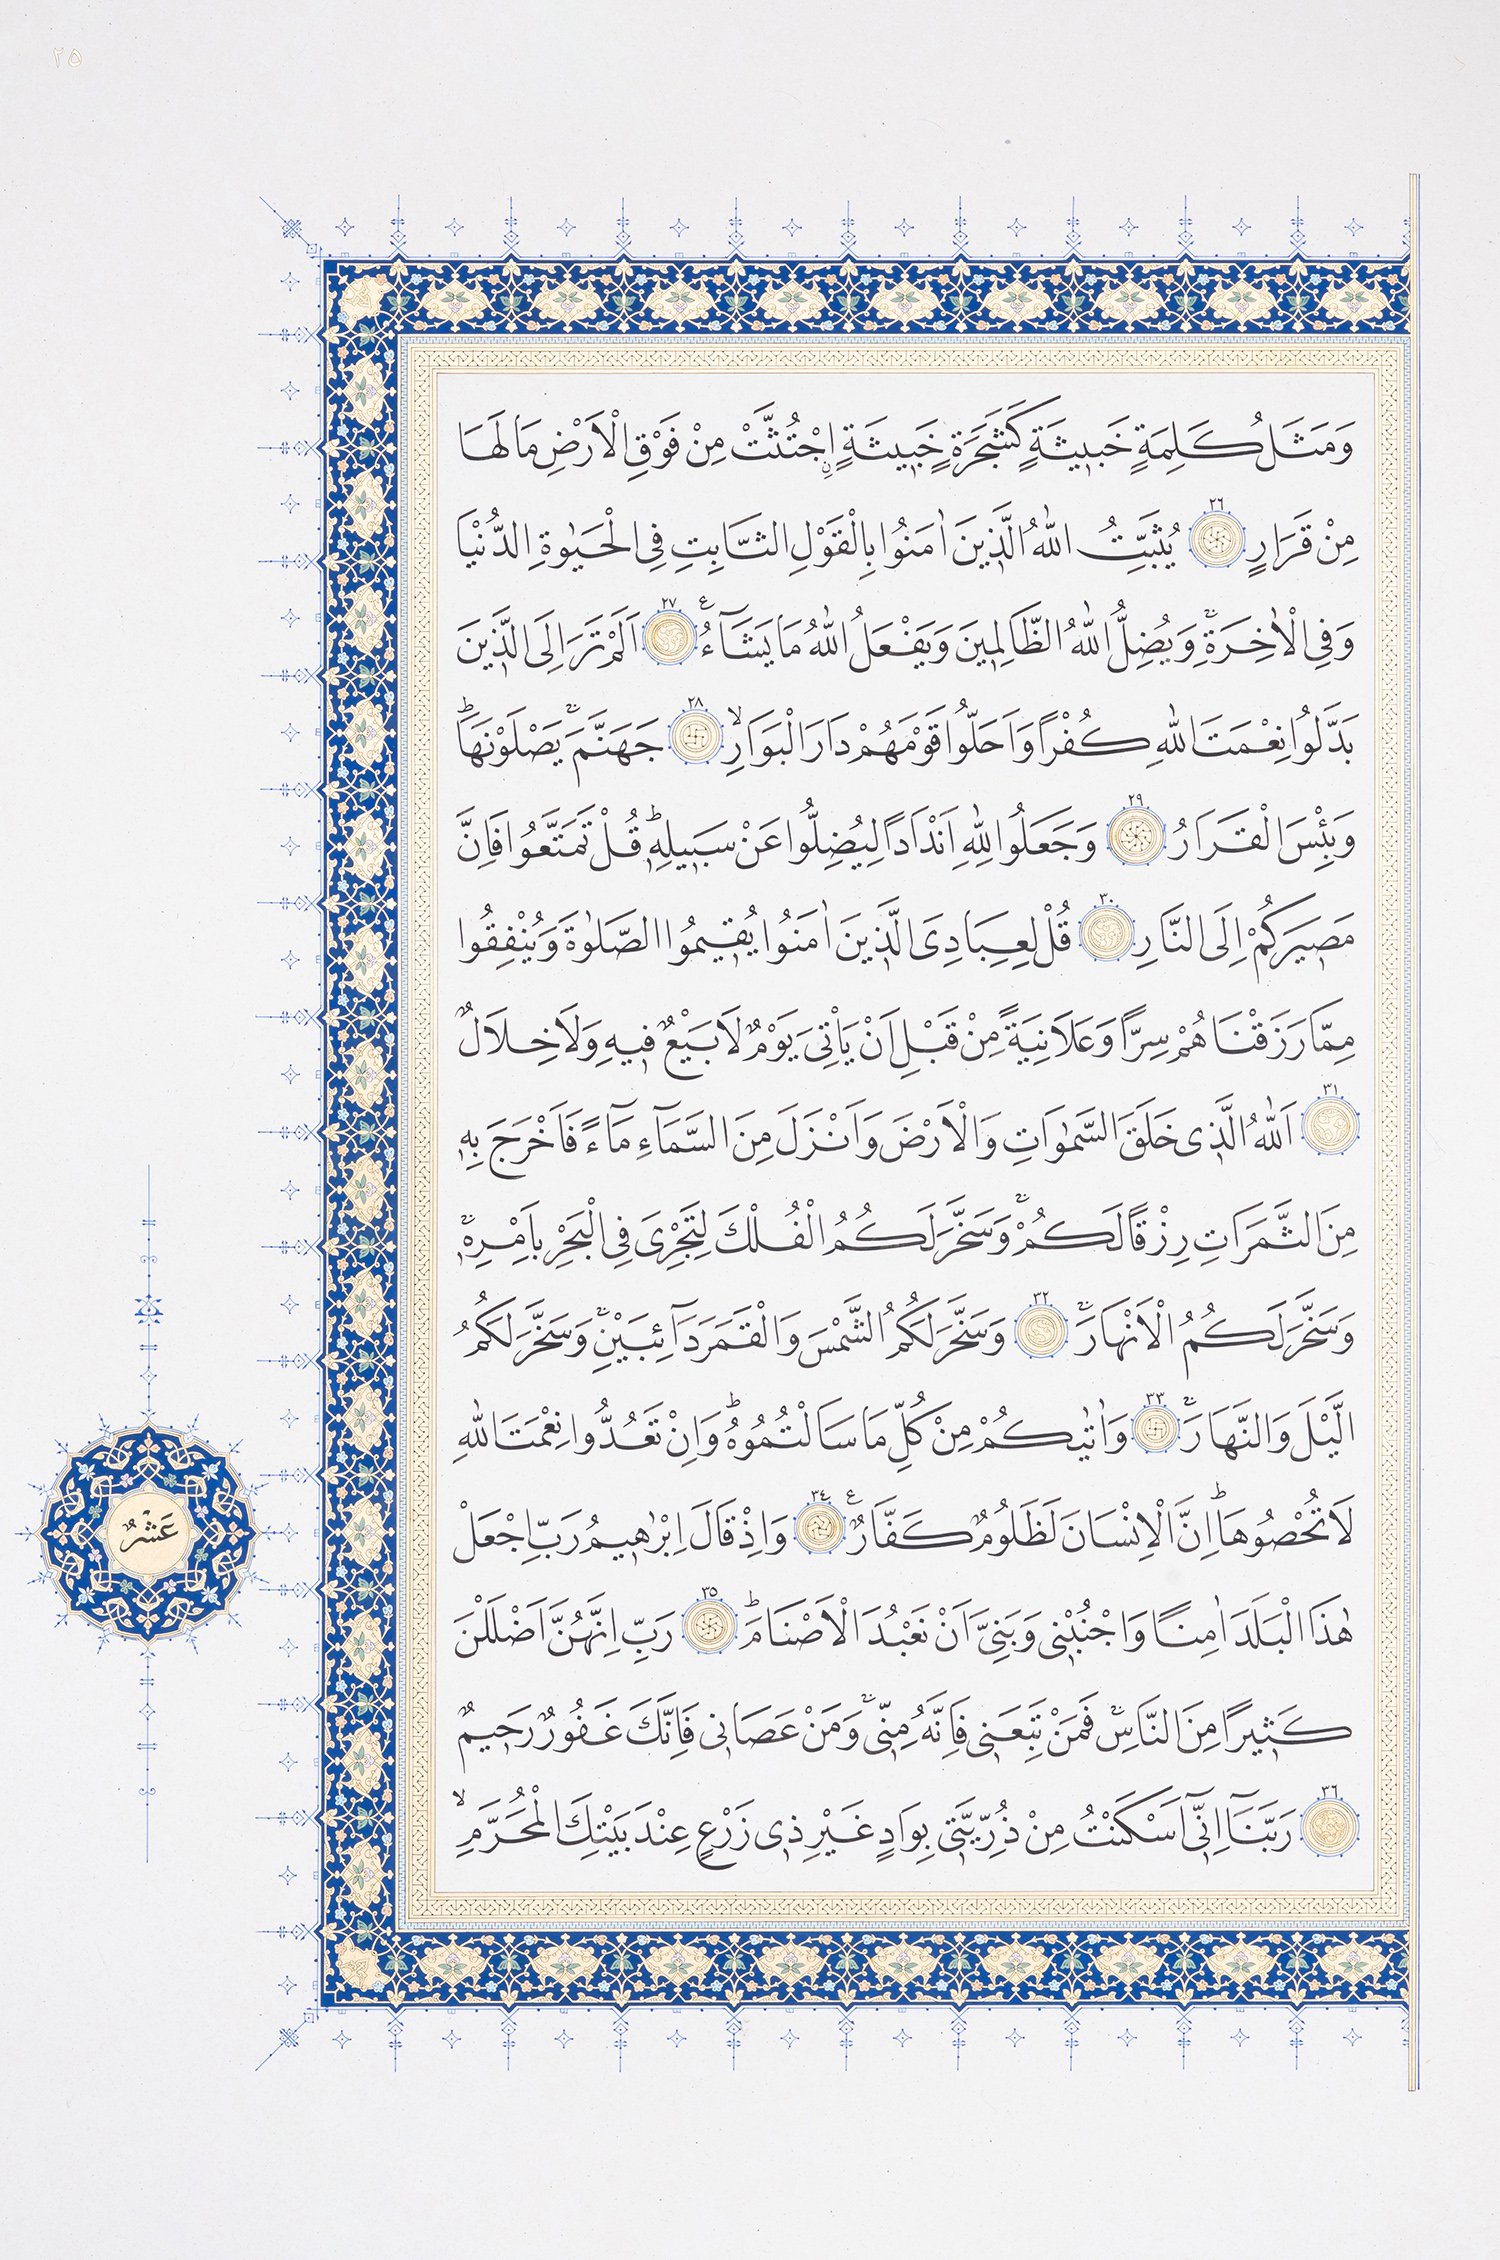 ٢٥
وَمَثَلُ كَلِمَةٍ خَبٖيثَةٍ كَشَجَرَةٍ خَبٖيثَةٍۨ اجْتُثَّتْ مِنْ فَوْقِ الْاَرْضِ مَا لَهَا
مِنْ قَرَارٍ ٢٦ يُثَبِّتُ اللّٰهُ الَّذٖينَ اٰمَنُوا بِالْقَوْلِ الثَّابِتِ فِى الْحَيٰوةِ الدُّنْيَا
وَفِى الْاٰخِرَةِۚ وَيُضِلُّ اللّٰهُ الظَّالِمٖينَ وَيَفْعَلُ اللّٰهُ مَا يَشَٓاءُࣖ ٢٧ اَلَمْ تَرَ اِلَى الَّذٖينَ
بَدَّلُوا نِعْمَتَ اللّٰهِ كُفْرًا وَاَحَلُّوا قَوْمَهُمْ دَارَ الْبَوَارِۙ ٢٨ جَهَنَّمَۚ يَصْلَوْنَهَاؕ
وَبِئْسَ الْقَرَارُ ٢٩ وَجَعَلُوا لِلّٰهِ اَنْدَادًا لِيُضِلُّوا عَنْ سَبٖيلِهٖؕ قُلْ تَمَتَّعُوا فَاِنَّ
مَصٖيرَكُمْ اِلَى النَّارِ ٣٠ قُلْ لِعِبَادِىَ الَّذٖينَ اٰمَنُوا يُقٖيمُوا الصَّلٰوةَ وَيُنْفِقُوا
مِمَّا رَزَقْنَاهُمْ سِرًّا وَعَلَانِيَةً مِنْ قَبْلِ اَنْ يَاْتِىَ يَوْمٌ لَا بَيْعٌ فٖيهِ وَلَا خِلَالٌ
٣١ اَللّٰهُ الَّذٖى خَلَقَ السَّمٰوَاتِ وَالْاَرْضَ وَاَنْزَلَ مِنَ السَّمَٓاءِ مَٓاءً فَاَخْرَجَ بِهٖ
مِنَ الثَّمَرَاتِ رِزْقًا لَكُمْۚ وَسَخَّرَ لَكُمُ الْفُلْكَ لِتَجْرِىَ فِى الْبَحْرِ بِاَمْرِهٖۚ
وَسَخَّرَ لَكُمُ الْاَنْهَارَۚ ٣٢ وَسَخَّرَ لَكُمُ الشَّمْسَ وَالْقَمَرَ دَٓائِبَيْنِۚ وَسَخَّرَ لَكُمُ
الَّيْلَ وَالنَّهَارَۚ ٣٣ وَاٰتٰيكُمْ مِنْ كُلِّ مَا سَاَلْتُمُوهُؕ وَاِنْ تَعُدُّوا نِعْمَتَ اللّٰهِ
لَا تُحْصُوهَاؕ اِنَّ الْاِنْسَانَ لَظَلُومٌ كَفَّارٌࣖ ٣٤ وَاِذْ قَالَ اِبْرٰهٖيمُ رَبِّ اجْعَلْ
هٰذَا الْبَلَدَ اٰمِنًا وَاجْنُبْنٖى وَبَنِىَّ اَنْ نَعْبُدَ الْاَصْنَامَؕ ٣٥ رَبِّ اِنَّهُنَّ اَضْلَلْنَ
كَثٖيرًا مِنَ النَّاسِۚ فَمَنْ تَبِعَنٖى فَاِنَّهُ مِنّٖىۚ وَمَنْ عَصَانٖى فَاِنَّكَ غَفُورٌ رَحٖيمٌ
٣٦ رَبَّنَٓا اِنّٖٓى اَسْكَنْتُ مِنْ ذُرِّيَّتٖى بِوَادٍ غَيْرِ ذٖى زَرْعٍ عِنْدَ بَيْتِكَ الْمُحَرَّمِۙ
عَشْرٌ